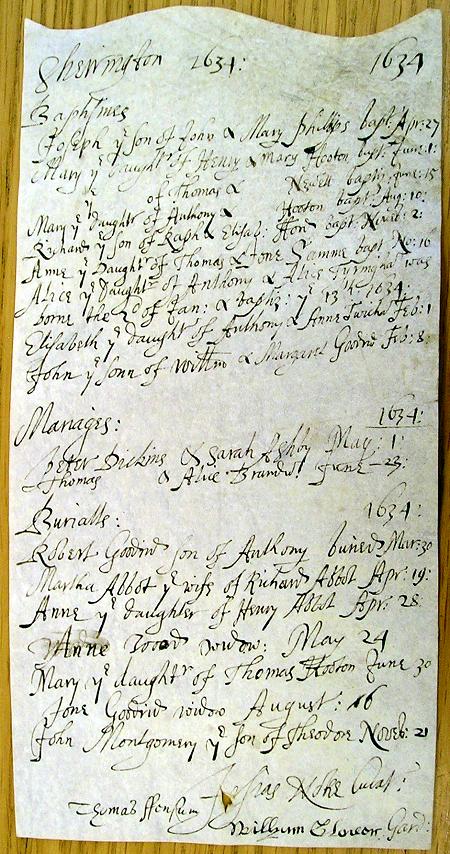 Sherington 1634: 1634
Baptismes
Joseph yᵉ son of John & Mary Phillips bapt: Apr: 27
Mary yᵉ daught: of Henry & Mary Hooton bapt: June: 1:
of Thomas & Newell bapt: June: 15
Mary yᵉ daughtʳ of Anthony & Hooton bapt: Aug: 10:
Richard yᵉ son of Raph & Elisab: bapt: Noveb: 2:
Anne yᵉ Daught of Thomas & Jone bapt No: 16
Alice yᵉ Daughtʳ of Anthony & Alice Tyringhā was
borne the 2ᵈ of Jan: & bapt: yᵉ 13ᵗʰ 1634:
Elisabeth yᵉ daughtʳ of Anthony & Anne Feb: 1
John yᵉ sonn of & Margaret Goodrid Feb: 8
Mariages: 1634:
Peter Dickins & Sarah Ashby May: 1:
Thomas & Alice June 23:
Burialls: 1634:
Robert Goodrid son of Anthony buried Mar: 30
Martha Abbot yᵉ wife of Richard Abbot Apr: 19:
Anne yᵉ daughter of Henry Abbot Apr: 28
Anne wood widow: May 24
Mary yᵉ daughtʳ of Thomas Hooton June 30
Jone Goodrid widow August: 16
John Montgomery yᵉ son of Theodore Noveb: 21
Josias Curat:
Thomas
William Glover Gard: